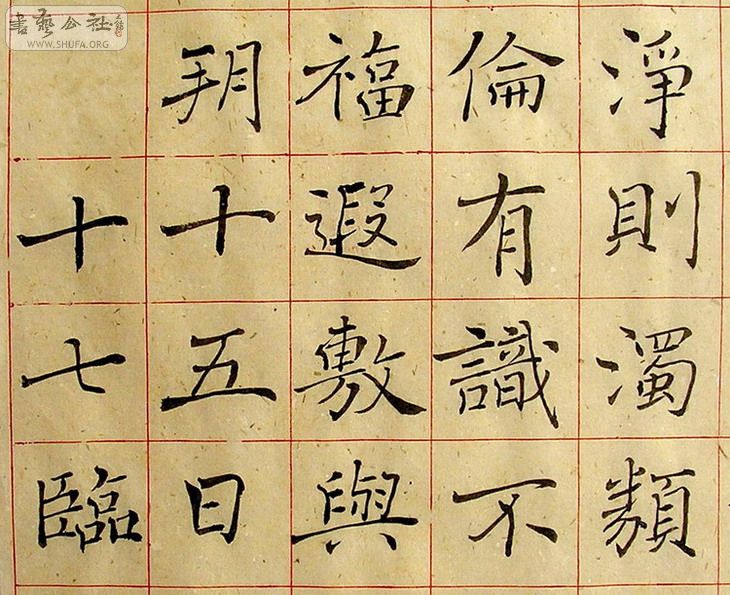 淨則濁類
倫有識不
福遐敷與
朔十五日
十七臨
書藝公社
WWW.SHUFA.ORG